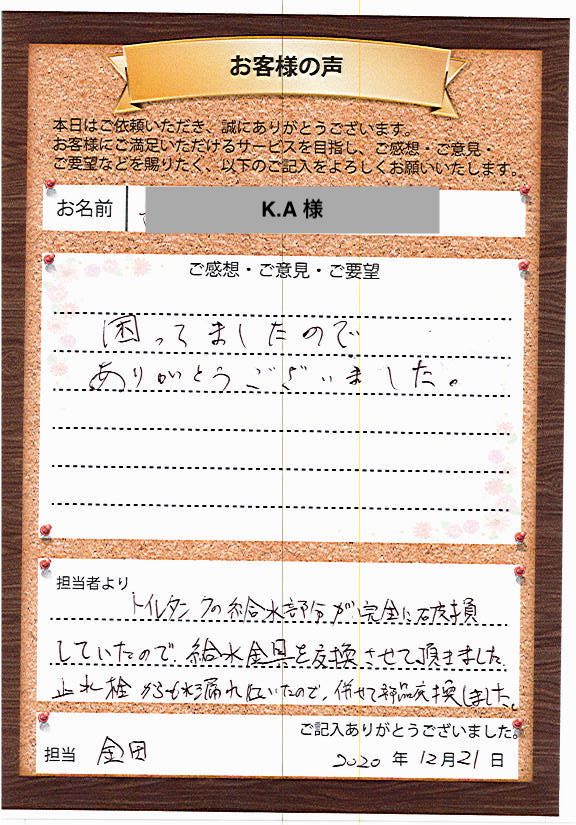 お客様の声
本日はご依頼いただき、誠にありがとうございます。
お客様にご満足いただけるサービスを目指し、ご感想・ご意見・
ご要望などを賜りたく、以下のご記入をよろしくお願いいたします。
お名前 K.A 様
ご感想・ご意見・ご要望
困ってましたので
ありがとうございました。
担当者より
トイレタンクの給水部分が完全に破損
していたので、給水金具を交換させて頂きました。
止水栓からも水漏れしていたので、併せて部品交換しました。
ご記入ありがとうございました。
担当 金田
2020 年 12月21日